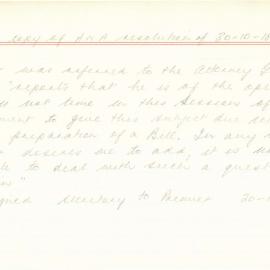 copy of A N A resolution of 30-10-18
was referred to the Attorney G
"reports that he is of the op
not time in this Session of
ment to give this subject due
preparation of a Bill. For any
desires me to add, it is
to deal with such a quest
Secretary to Premier 30-